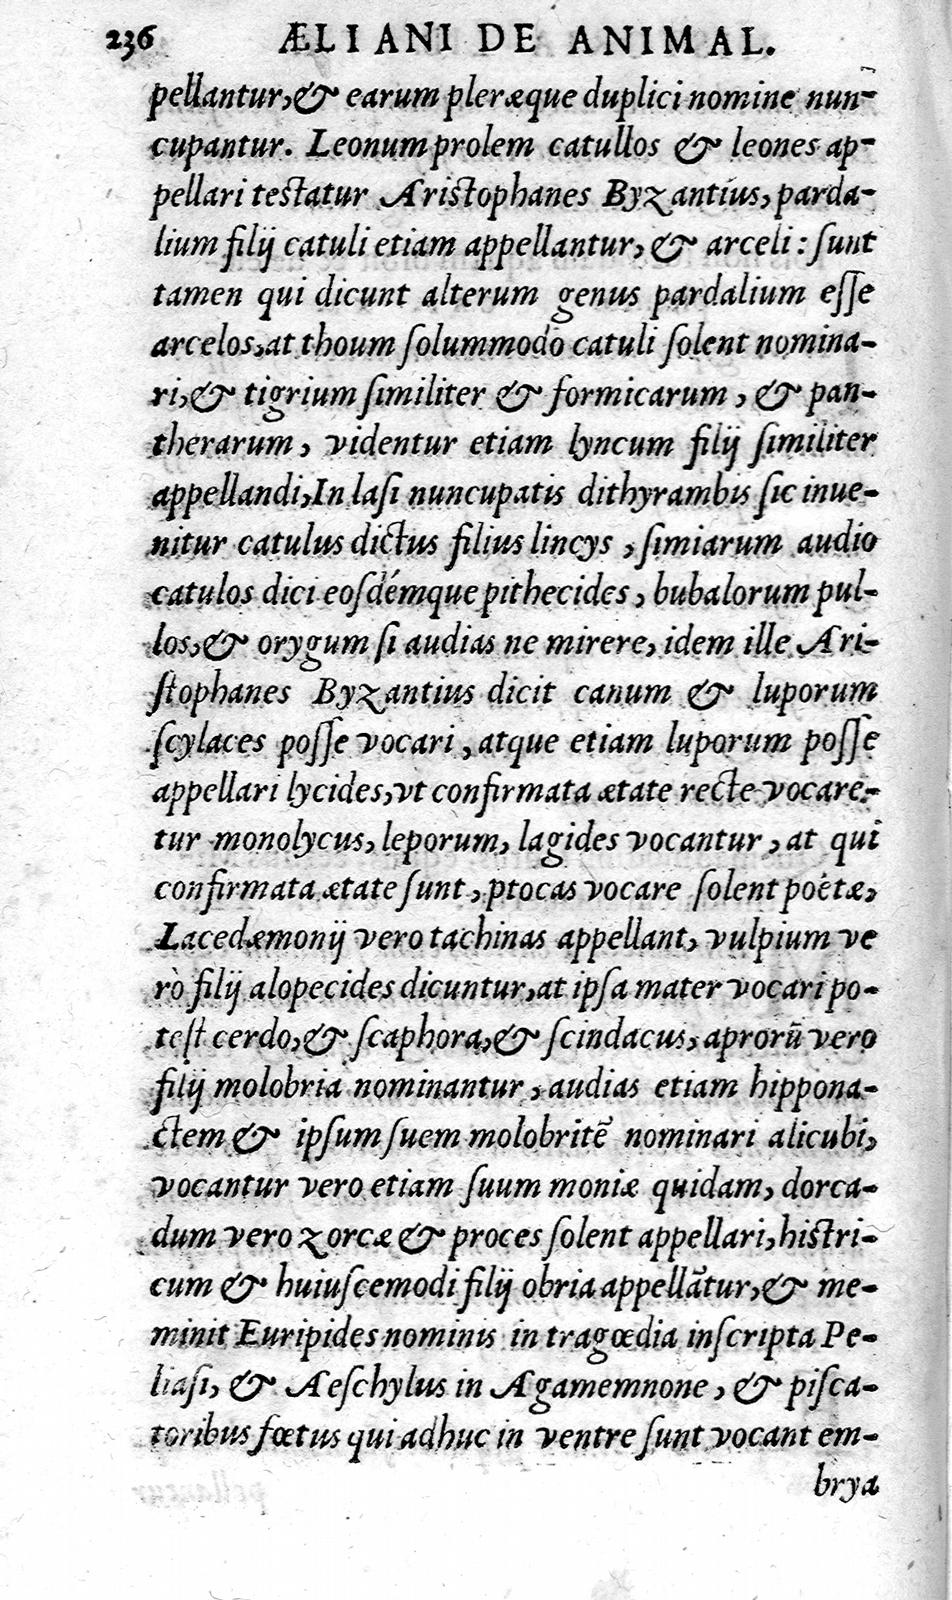 236 ÆLIANI DE ANIMAL.
pellantur, & earum pleræque duplici nomine nun-
cupantur. Leonum prolem catullos & leones ap-
pellari testatur Aristophanes Byzantius, parda-
lium filij catuli etiam appellantur, & arceli: ſunt
tamen qui dicunt alterum genus pardalium eſſe
arcelos, at thoum ſolummodo catuli ſolent nomina-
ri, & tigrium ſimiliter & formicarum, & pan-
therarum, videntur etiam lyncum filij ſimiliter
appellandi, In laſi nuncupatis dithyrambis ſic inue-
nitur catulus dictus filius lincys, ſimiarum audio
catulos dici eoſdémque pithecides, bubalorum pul-
los, & orygum ſi audias ne mirere, idem ille Ari-
ſtophanes Byzantius dicit canum & luporum
ſcylaces poſſe vocari, atque etiam luporum poſſe
appellari lycides, vt confirmata ætate recte vocare-
tur monolycus, leporum, lagides vocantur, at qui
confirmata ætate ſunt, ptocas vocare ſolent poëtæ,
Lacedæmonij vero tachinas appellant, vulpium ve
rò filij alopecides dicuntur, at ipſa mater vocari po-
teſt cerdo, & ſcaphora, & ſcindacus, aprorū vero
filij molobria nominantur, audias etiam hippona-
ctem & ipſum ſuem molobritē nominari alicubi,
vocantur vero etiam ſuum moniæ quidam, dorca-
dum vero zorcæ & proces ſolent appellari, histri-
cum & huiuſcemodi filij obria appellātur, & me-
minit Euripides nominis in tragœdia inſcripta Pe-
liaſi, & Aeſchylus in Agamemnone, & piſca-
toribus fœtus qui adhuc in ventre ſunt vocant em-
brya